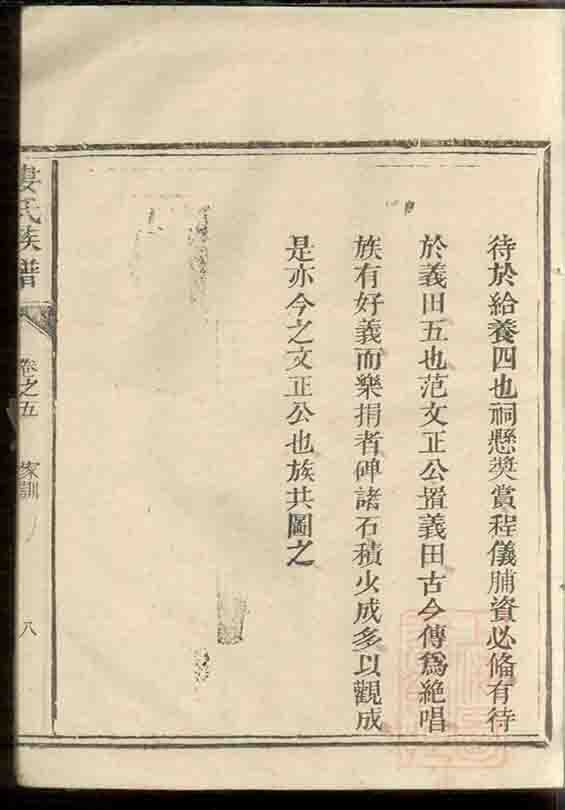 待於給養四也祠懸奨賞程儀脯資必俻有待
於義田五也范文正公置義田古今傳爲絕唱
族有好義而樂捐者碑諸石積少成多以觀成
是亦今之文正公也族共圖之
婁氏族譜
卷之五
家訓
八